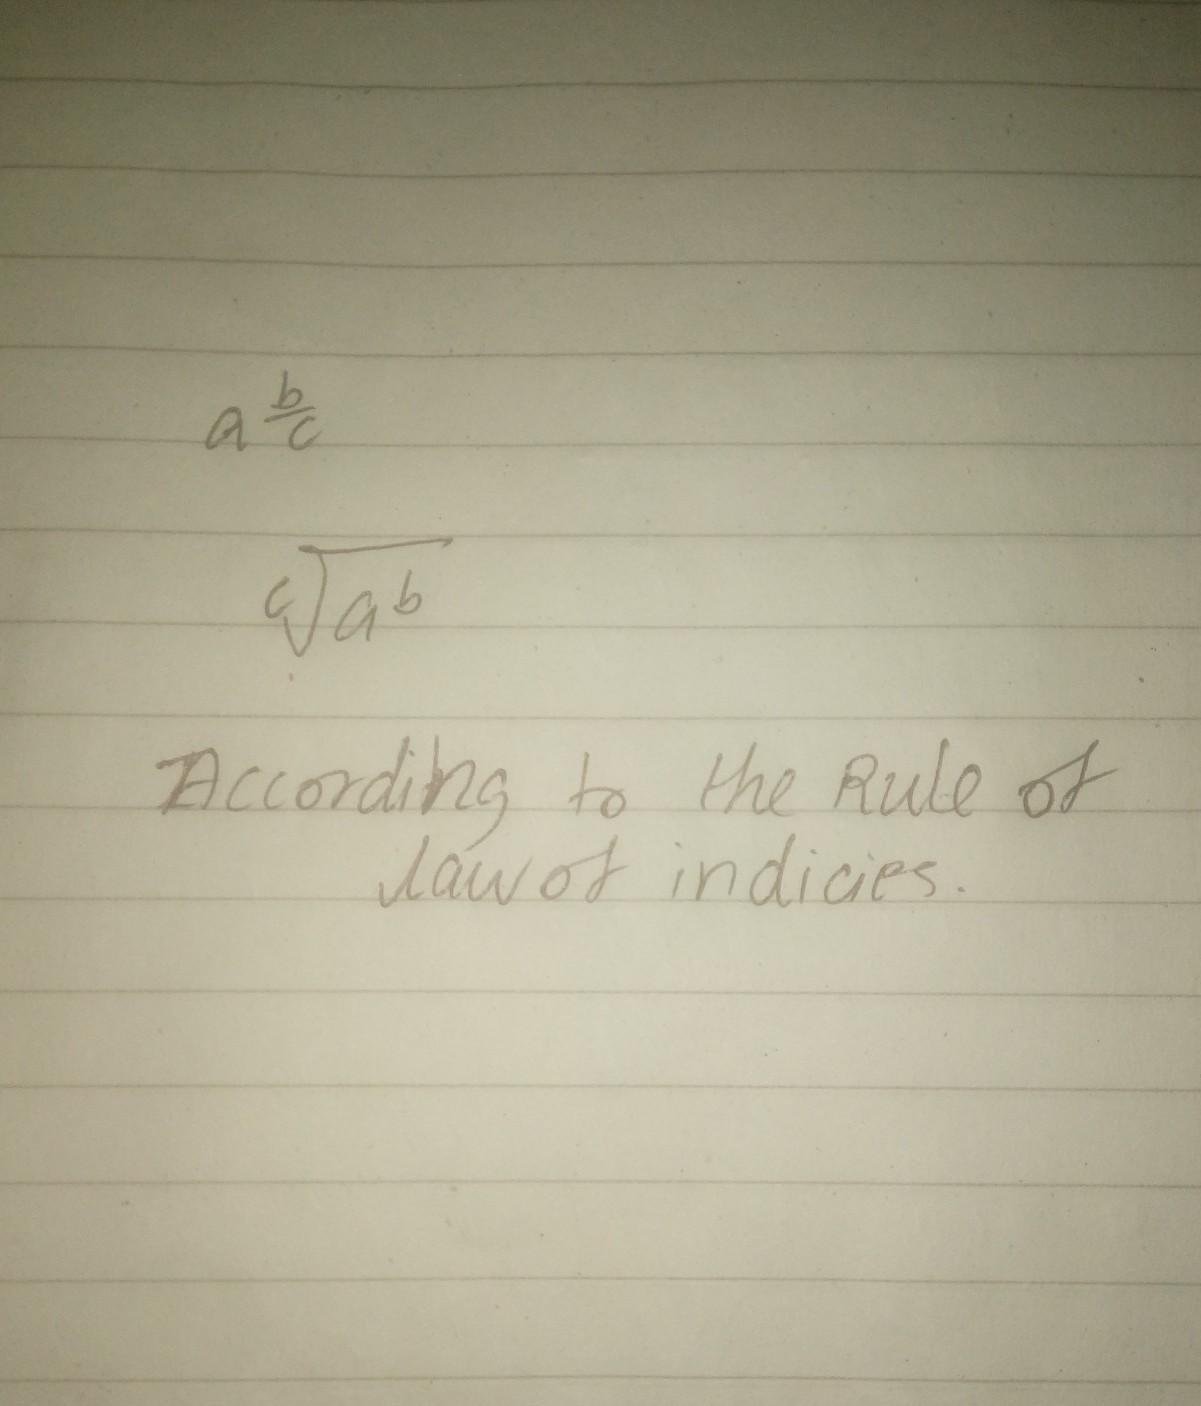 a^{\frac{b}{c}}
\sqrt[c]{a^b}
According to the Rule of
law of indicies.